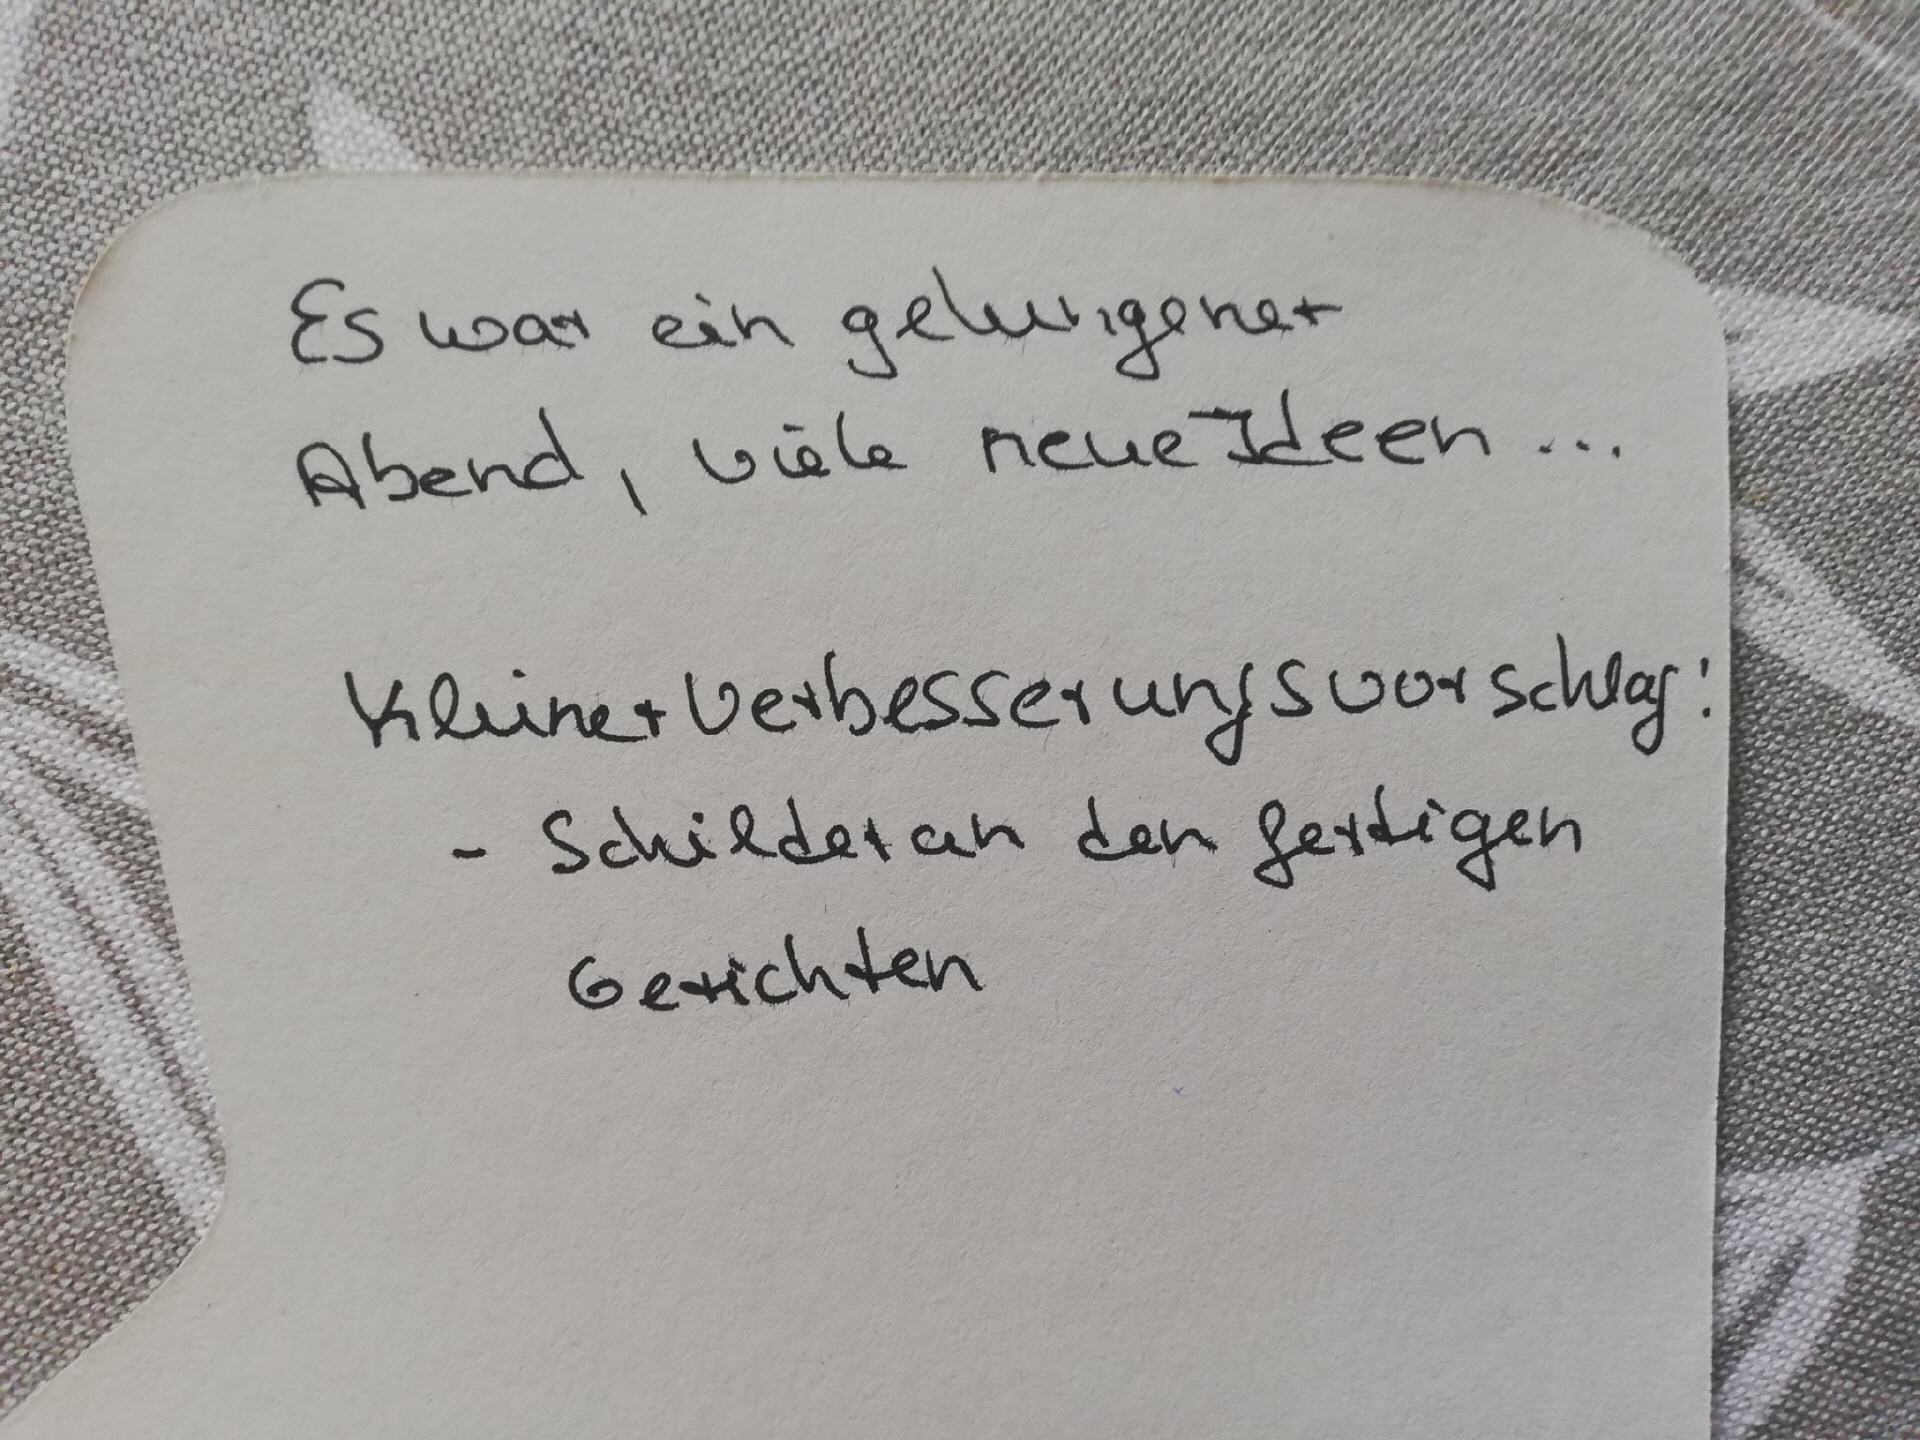 Es war ein gelungener
Abend, viele neue Ideen ...
Kleiner Verbesserungsvorschlag:
- Schilder an den fertigen
Gerichten